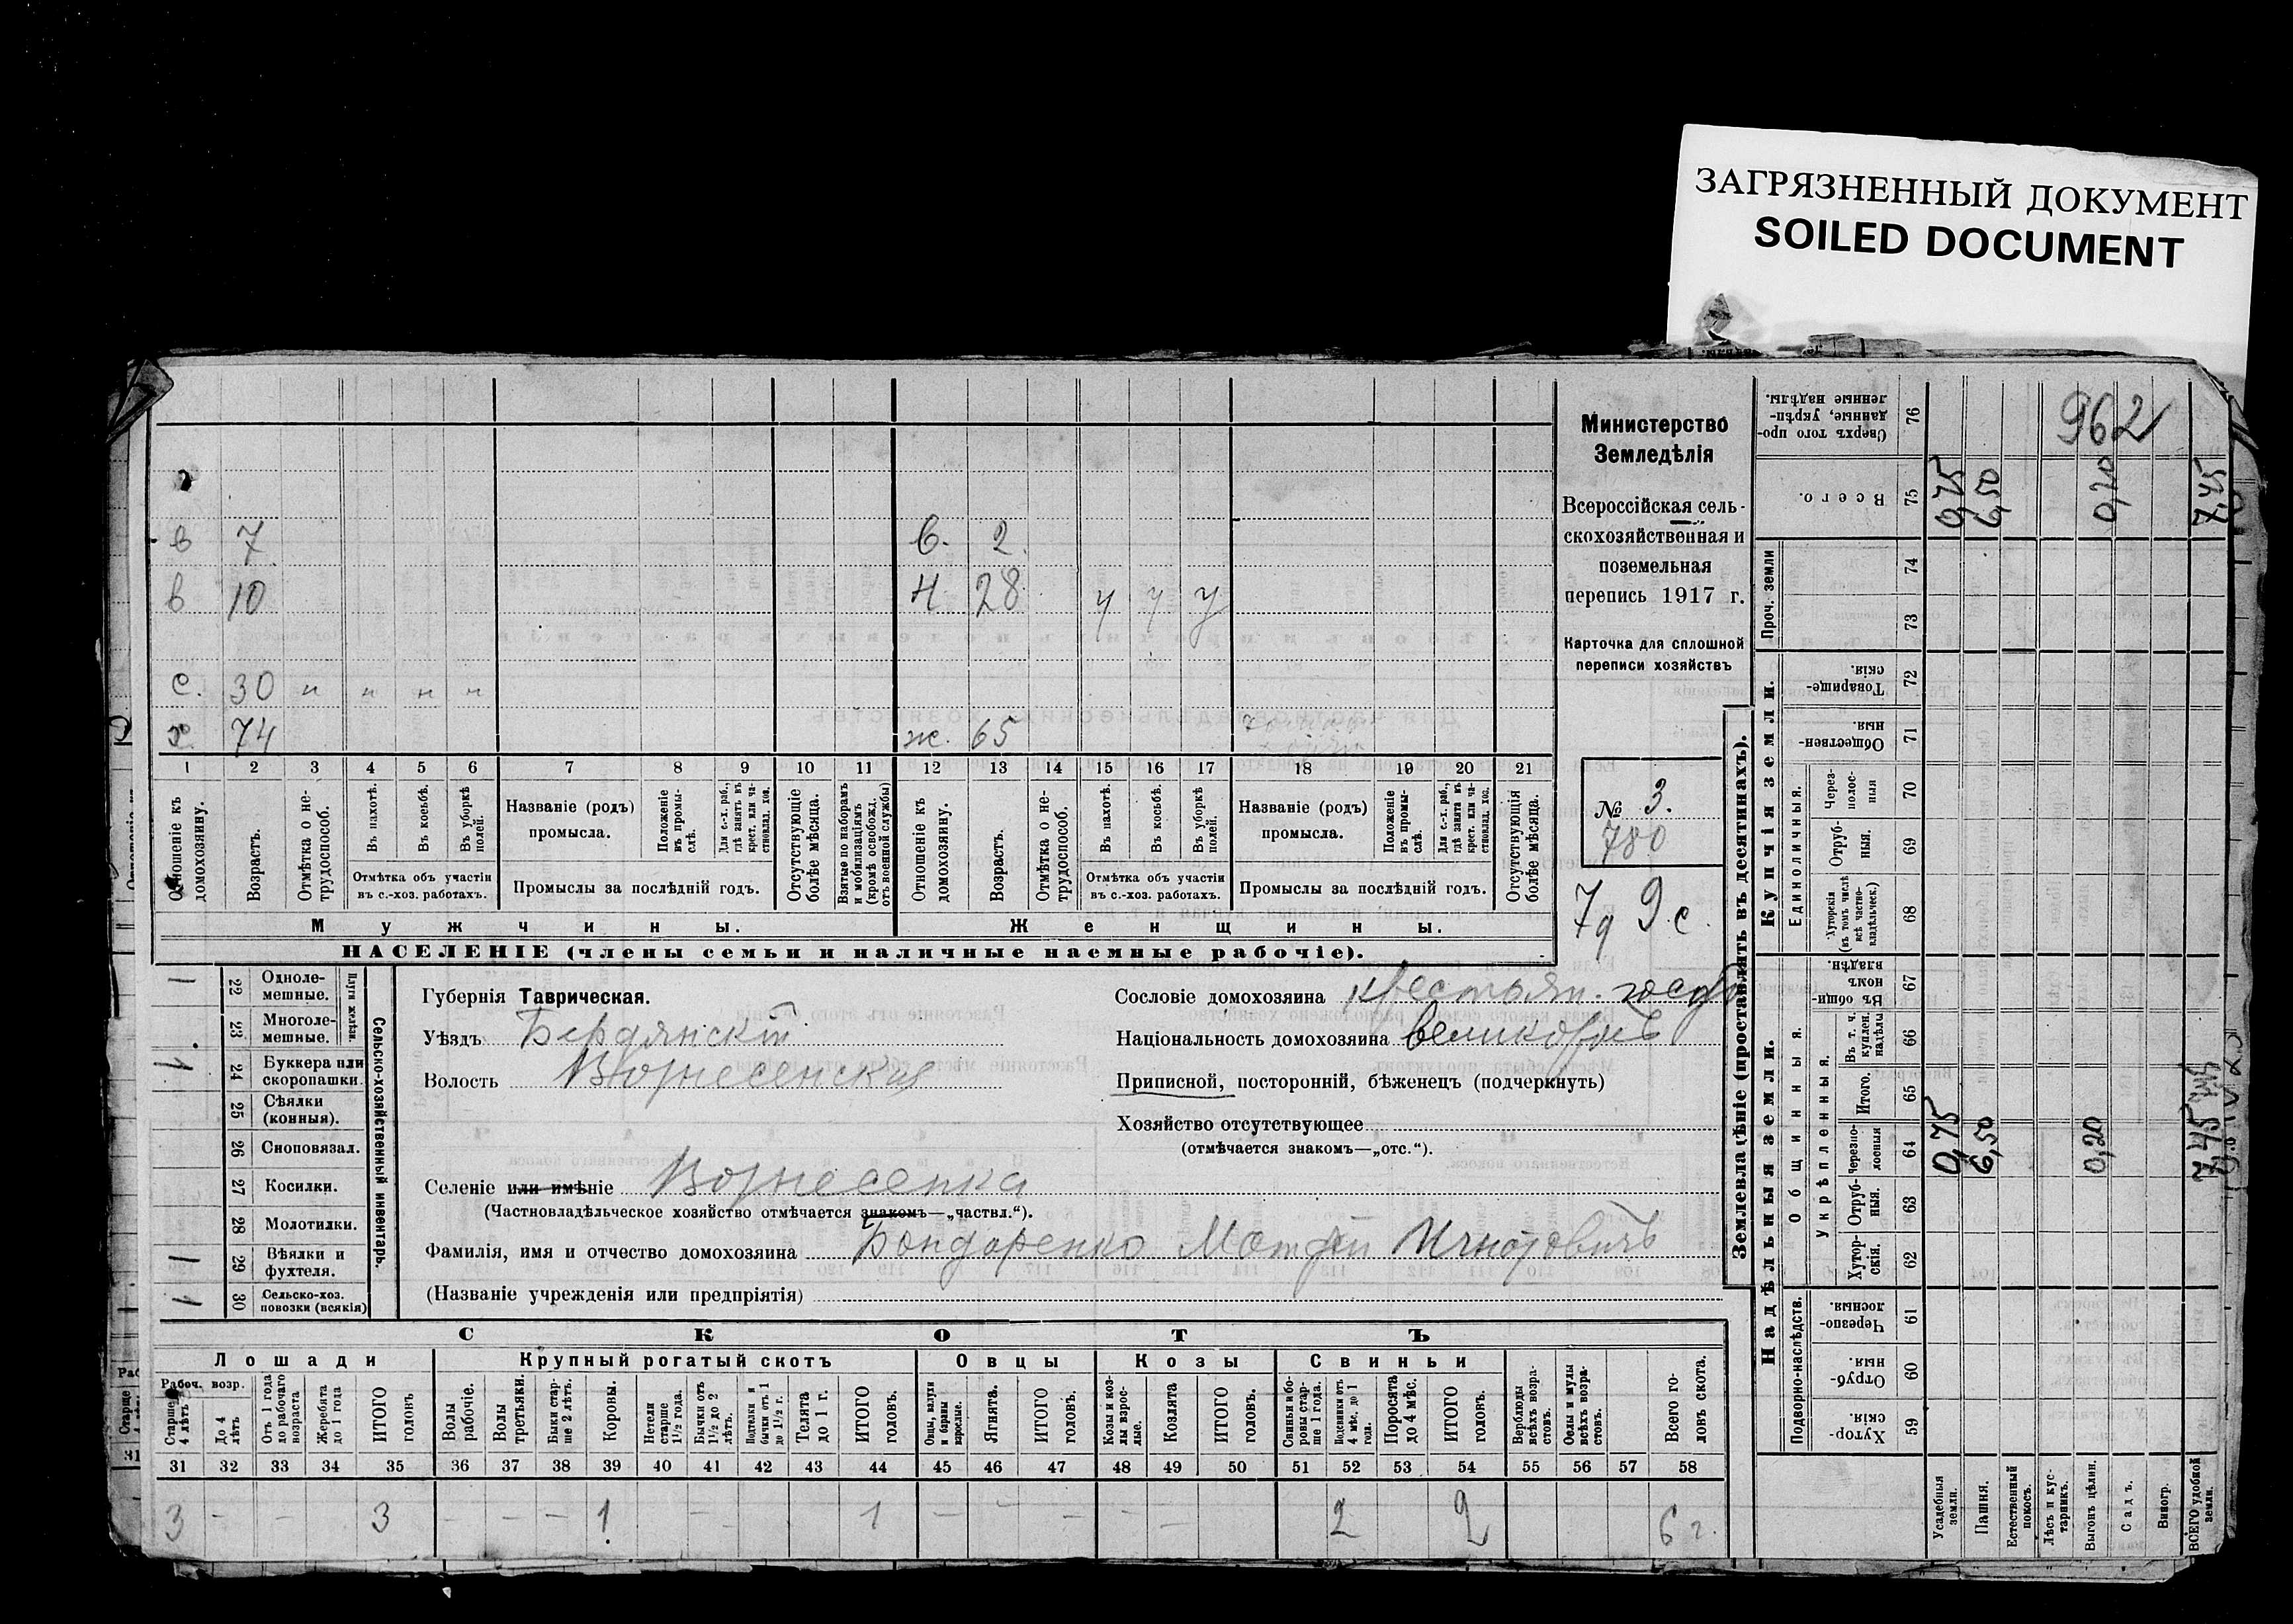 ЗАГРЯЗНЕННЫЙ ДОКУМЕНТ
SOILED DOCUMENT
в 7 в. 2
в 10 н 28 у у у
с. 30 н н н н
х 74 ж. 65
1 2 3 4 5 6 7 8 9 10 11 12 13 14 15 16 17 18 19 20 21
Отношеніе къ домохозяину.
Возрастъ.
Отмѣтка о нетрудоспособ.
Въ пахотѣ.
Въ косьбѣ.
Въ уборкѣ полей.
Отмѣтка объ участіи
въ с.-хоз. работахъ.
Названіе (родъ)
промысла.
Положеніе въ промыслѣ.
Для с.-х. раб., гдѣ занятъ въ крест. или частновлад. хоз.
Промыслы за послѣдній годъ.
Отсутствующіе болѣе мѣсяца.
Взятые по наборамъ и мобилизаціямъ (кромѣ освобожд. отъ военной службы)
Отношеніе къ домохозяину.
Возрастъ.
Отмѣтка о нетрудоспособ.
Въ пахотѣ.
Въ косьбѣ.
Въ уборкѣ полей.
Отмѣтка объ участіи
въ с.-хоз. работахъ.
Названіе (родъ)
промысла.
Положеніе въ промыслѣ.
Для с.-х. раб., гдѣ занята въ крест. или частновлад. хоз.
Промыслы за послѣдній годъ.
Отсутствующія болѣе мѣсяца.
Мужчины. Женщины.
НАСЕЛЕНІЕ (члены семьи и наличные наемные рабочіе).
Министерство
Земледѣлія
Всероссійская сель-
скохозяйственная и
поземельная
перепись 1917 г.
Карточка для сплошной
переписи хозяйствъ
№ 3.
780
7д 9.с.
Сельско-хозяйственный инвентарь.
Плуги желѣзн.
1 22 Одноле-
мешные.
23 Многоле-
мешные.
1 24 Буккера или
скоропашки.
25 Сѣялки
(конныя).
26 Сноповязал.
27 Косилки.
28 Молотилки.
1 29 Вѣялки и
фухтеля.
1 30 Сельско-хоз.
повозки (всякія)
Губернія Таврическая.
Уѣздъ Бердянскій
Волость Вознесенская
Сословіе домохозяина крестьян.
Національность домохозяина великорось
Приписной, посторонній, бѣженецъ (подчеркнуть)
Хозяйство отсутствующее
(отмѣчается знакомъ—„отс.“).
Селеніе или имѣніе Вознесенка
(Частновладѣльческое хозяйство отмѣчается знакомъ—„частвл.“).
Фамилія, имя и отчество домохозяина Бондаренко Матфій Игнатовичъ
(Названіе учрежденія или предпріятія)
СКОТЪ
Лошади Крупный рогатый скотъ Овцы Козы Свиньи
Рабоч. возр.
Старше 4 лѣтъ
До 4 лѣтъ
Отъ 1 года до рабочаго возраста
Жеребята до 1 года
ИТОГО головъ
Волы рабочіе.
Волы третьяки.
Быки старше 2 лѣтъ.
Коровы.
Нетели старше 1½ года.
Бычки отъ 1½ до 2 лѣтъ.
Подтелки и бычки отъ 1 до 1½ г.
Телята до 1 г.
ИТОГО головъ.
Овцы, валухи и бараны взрослые.
Ягнята.
ИТОГО головъ.
Козы и козлы взрослые.
Козлята
ИТОГО головъ.
Свиньи и боровы старше 1 года.
Подсвинки отъ 4 мѣс. до 1 года.
Поросята до 4 мѣс.
ИТОГО головъ.
Верблюды всѣхъ возрастовъ.
Ослы и мулы всѣхъ возрастовъ.
Всего головъ скота.
31 32 33 34 35 36 37 38 39 40 41 42 43 44 45 46 47 48 49 50 51 52 53 54 55 56 57 58
3 – – 3 – – – 1 – – – 1 – – – – – – 2 2 6 г.
Землевладѣніе (проставлять въ десятинахъ).
Надѣльныя земли. Купчія земли. Проч. земли
Подворно-наслѣдств.
Общинныя.
Укрѣпленныя.
Единоличныя.
Хуторскія 59
Отрубныя. 60
Черезполосныя. 61
Хуторскія. 62
Отрубныя. 63
Черезполосныя 64
Итого. 65
Въ т. ч. куплен. надѣлы 66
Въ общинномъ владѣн. 67
Хуторскія (въ томъ числѣ всѣ частновладѣльческ.) 68
Отрубныя. 69
Черезполосныя 70
Общественныя 71
Товарищескія. 72
73
74
Всего. 75
Сверхъ того проданные, укрѣпленные надѣлы. 76
962
0,75 6,50 0,20 7,45
0,75 6,50 0,20 7,45
Усадебныя земли.
Пашня.
Естественный покосъ.
Лѣсъ и кустарникъ.
Выгонъ цѣлин.
Садъ.
Виногр.
ВСЕГО удобной земли.